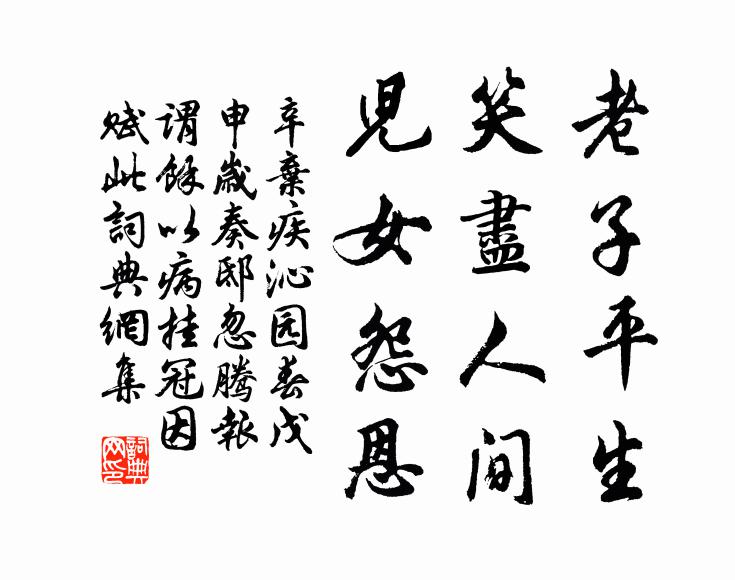 老子平生
笑盡人间
児女怨恩
辛棄疾沁园春戊
申歲奏邸忽騰報
謂餘以病挂冠因
赋此詞典網集
詞典
网印